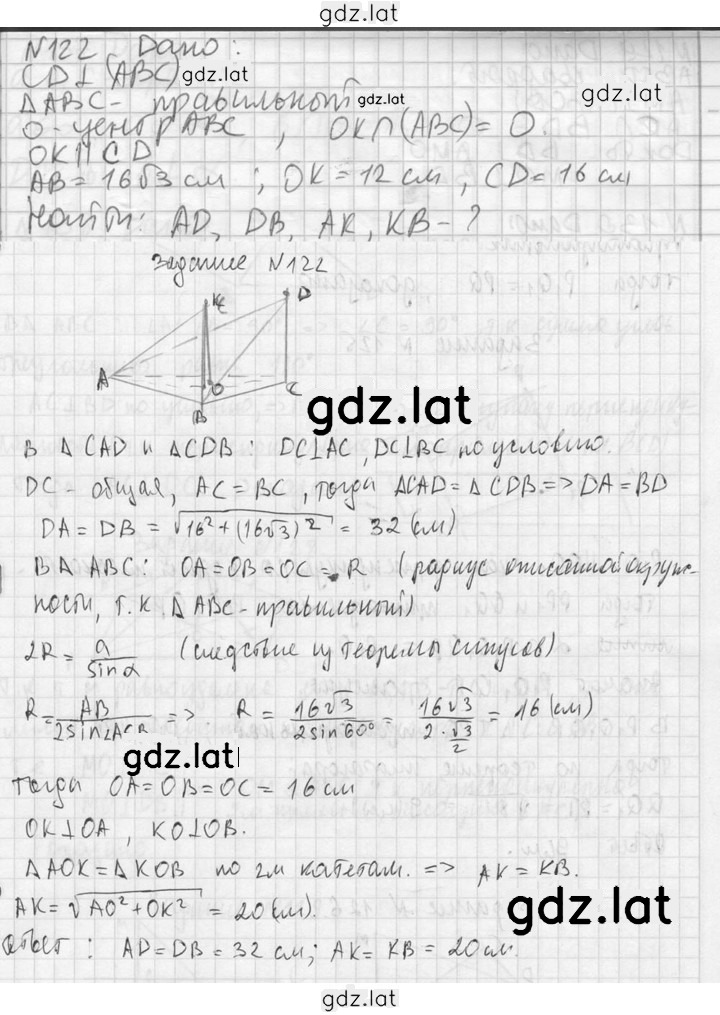 gdz.lat
N122 Дано:
CD⊥(ABC) gdz.lat
△ABC - правильный gdz.lat gdz.lat
O - центр ABC, OK∩(ABC)=O.
OK∥CD
AB=16√3 см; OK=12 см, CD=16 см
Найти: AD, DB, AK, KB-?
Задание N122
K D
A O C
B
gdz.lat
В △CAD и △CDB: DC⊥AC, DC⊥BC по условию.
DC - общая, AC=BC, тогда △CAD=△CDB=>DA=BD
DA=DB=√16²+(16√3)²=32(см)
В △ABC: OA=OB=OC=R (радиус описанной окруж-
ности, т.к △ABC-правильный)
2R=a/sinα (следствие из теоремы синусов)
R=AB/2sin∠ACB => R=16√3/2sin60°=16√3/2·√3/2=16(см)
gdz.lat
Тогда OA=OB=OC=16 см
OK⊥OA, KO⊥OB.
△AOK=△KOB по 2м катетам. => AK=KB.
AK=√AO²+OK²=20(см).
gdz.lat
Ответ: AD=DB=32 см; AK=KB=20см.
gdz.lat